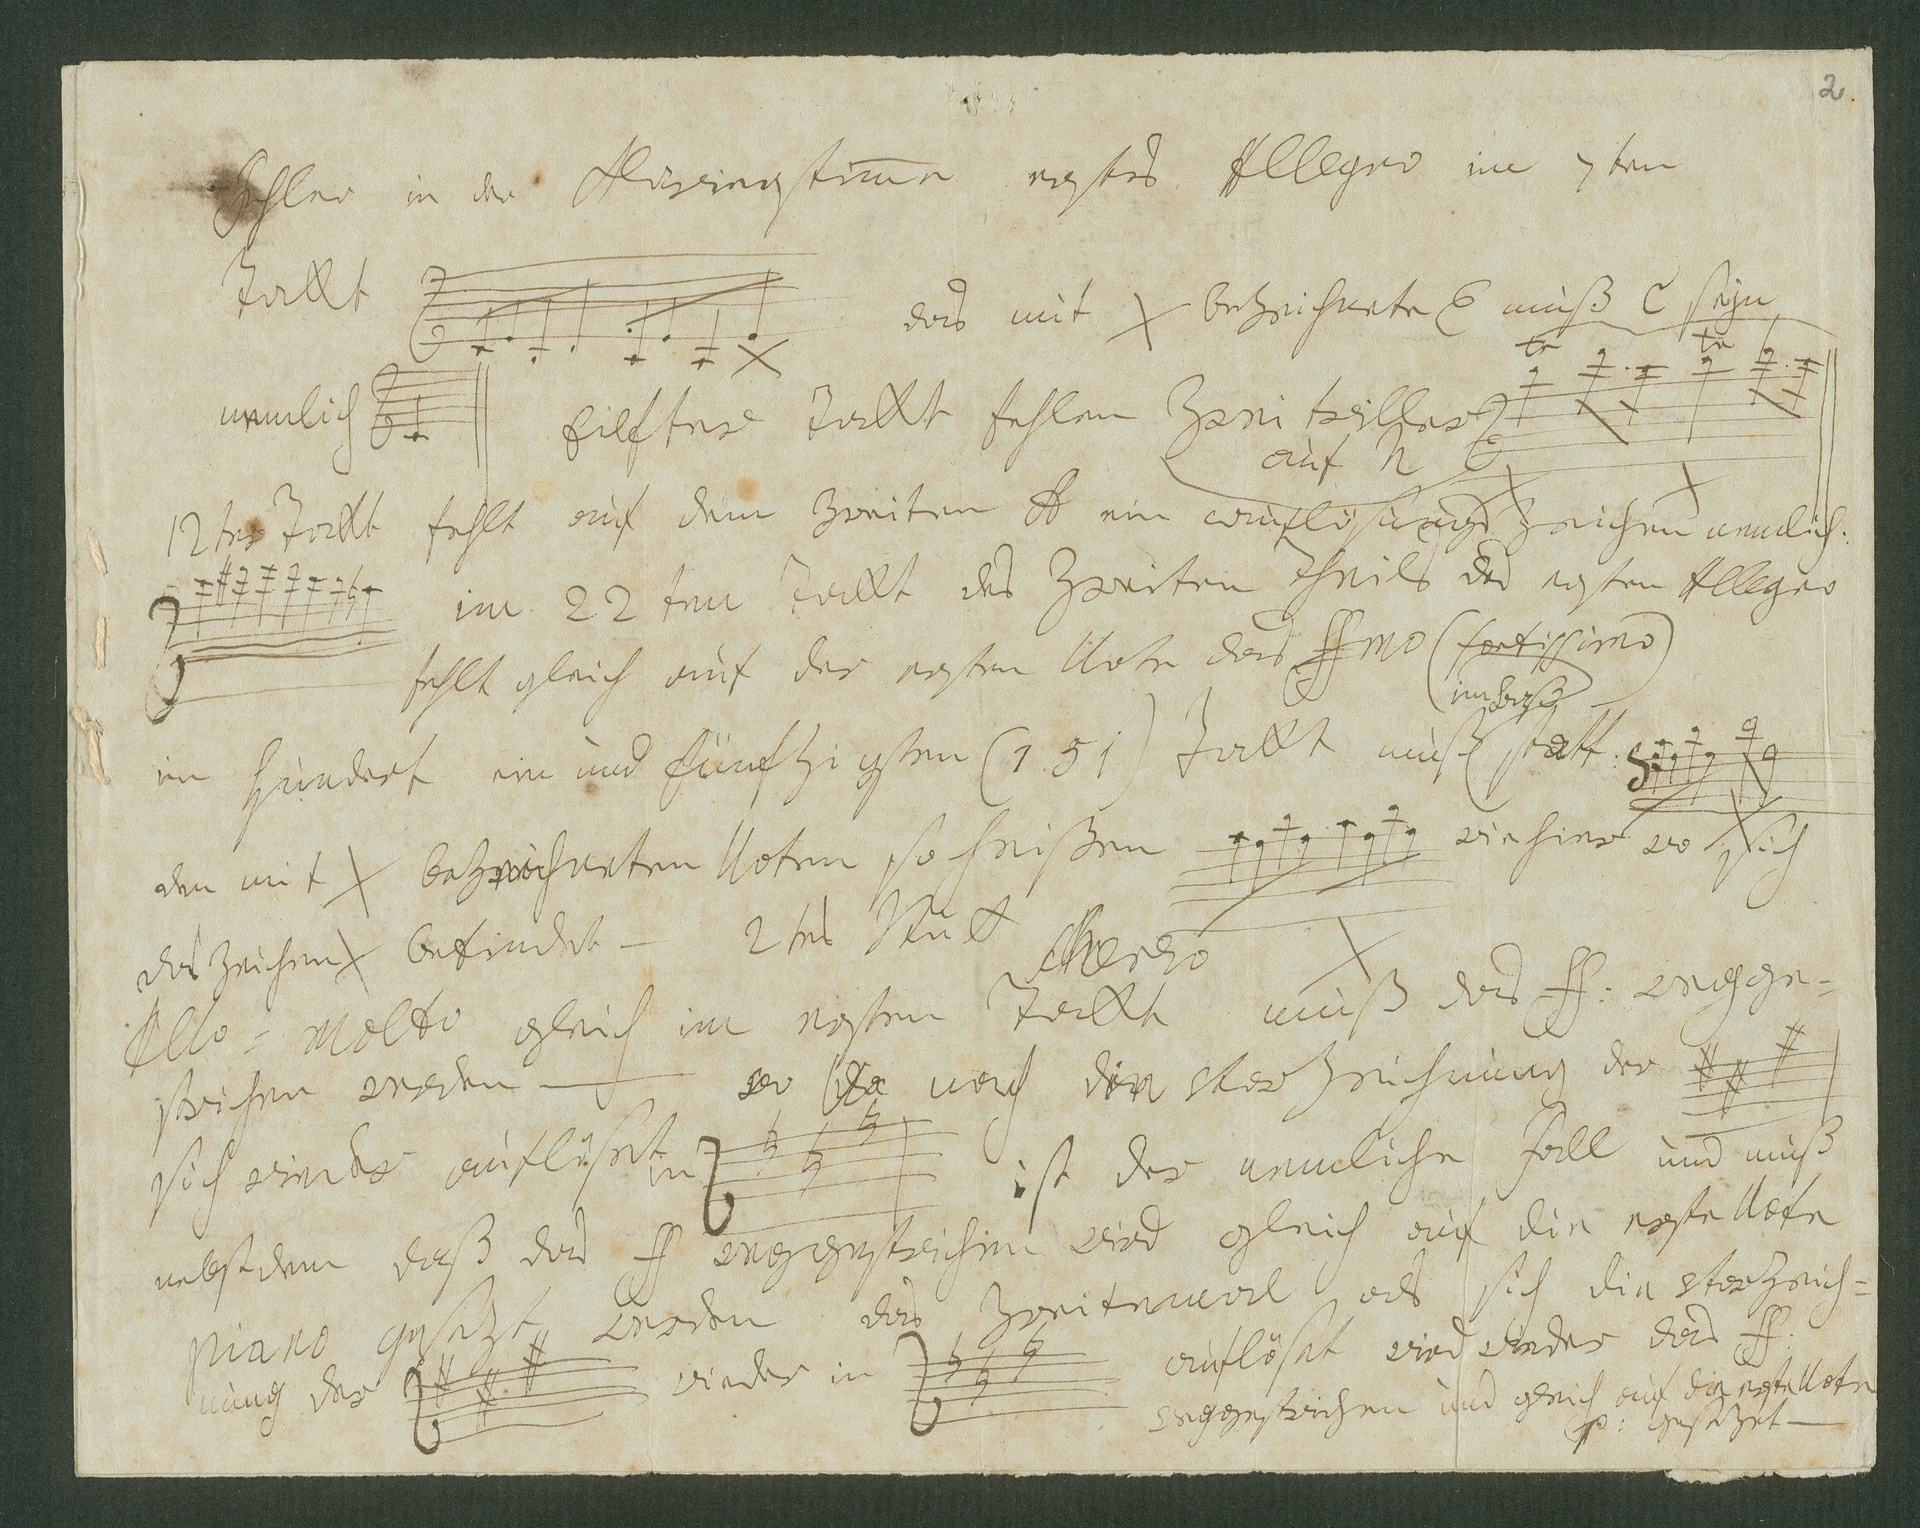 2
Fehler in der Klawierstimme erstes Allegro im 7ten
Takt das mit X bezeichnete E muß C seyn
nemlich eilfter Takt fehlen Zwei triller
tr tr
auf h
12ter Takt fehlt auf dem zweiten A ein auflösungs Zeichen nemlich:
im 22ten Takt des Zweiten Theils des ersten Allegro
fehlt gleich auf der ersten Note das ffmo (fortissimo)
im Baß
im Hundert ein und fünfzigsten (151) Takt muß statt:
den mit X bezeichneten Noten so heißen wie hier wo sich
das Zeichen X befindet — 2tes Stük
scherzo
Allo = molto gleich im ersten Takt muß das ff: wegge=
strichen werden — wo da nach die vorzeichnung der
sich wieder auflößt in ist der nemliche Fall und muß
nebstdem daß das ff weggestrichen wird gleich auf die erste Note
piano gesezt werden das zweitemal als sich die vorzeich=
nung der wieder in auflößt wird wieder das ff:
weggestrichen und gleich auf die erste Note
p: gesezet —